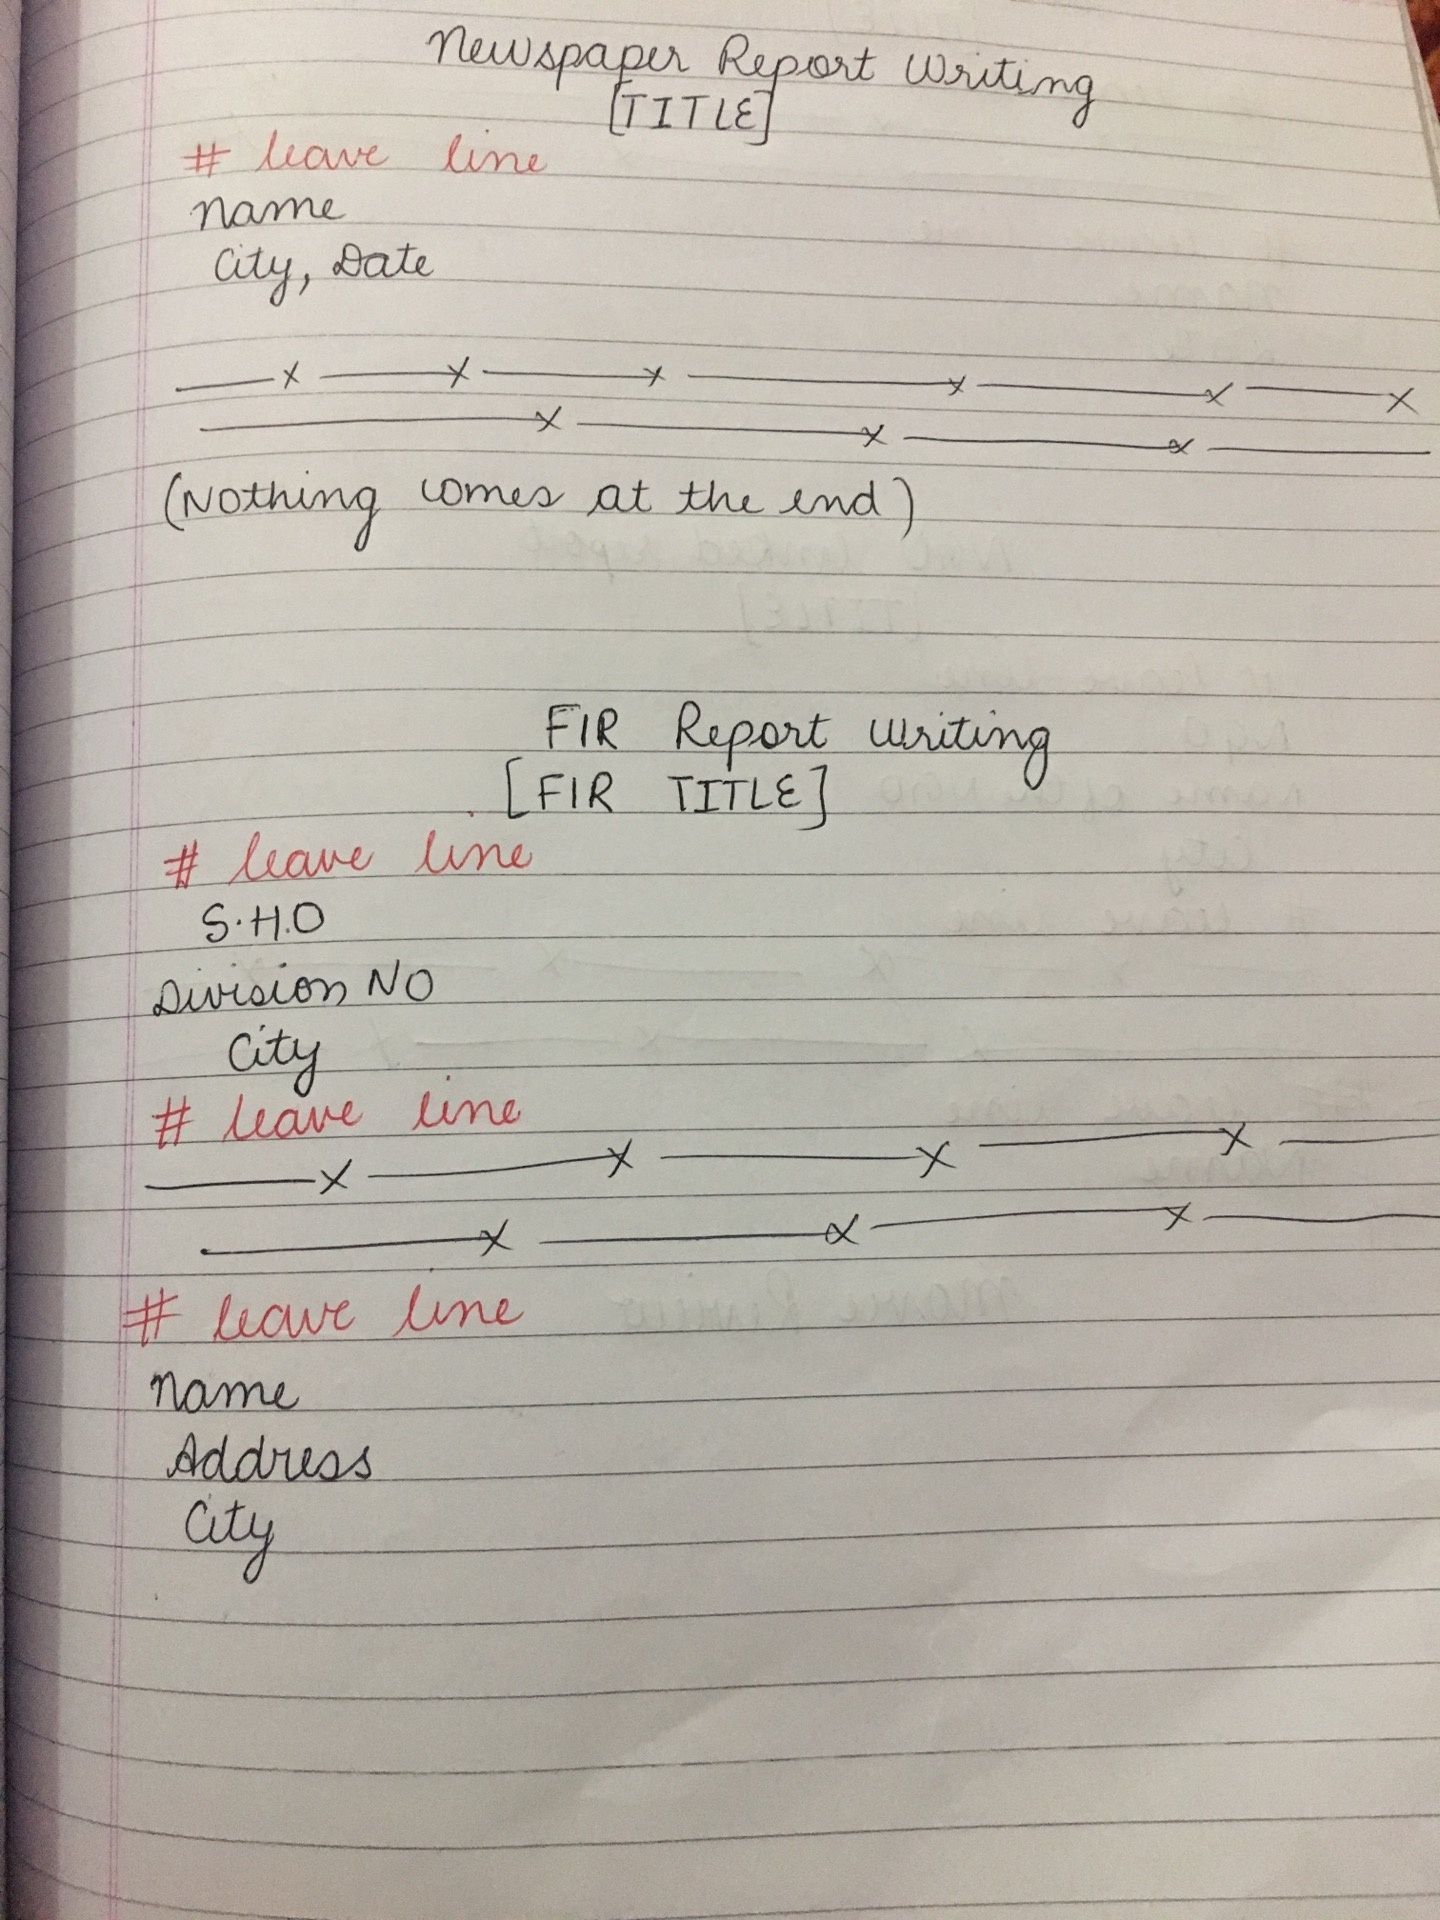 Newspaper Report Writing
[TITLE]
# leave line
Name
City, Date
—x—x—x—x—x—x
—x—x—x—
(Nothing comes at the end)
FIR Report Writing
[FIR TITLE]
# leave line
S.H.O
Division NO
City
# leave line
—x—x—x—x—
—x—x—x—
# leave line
Name
Address
City